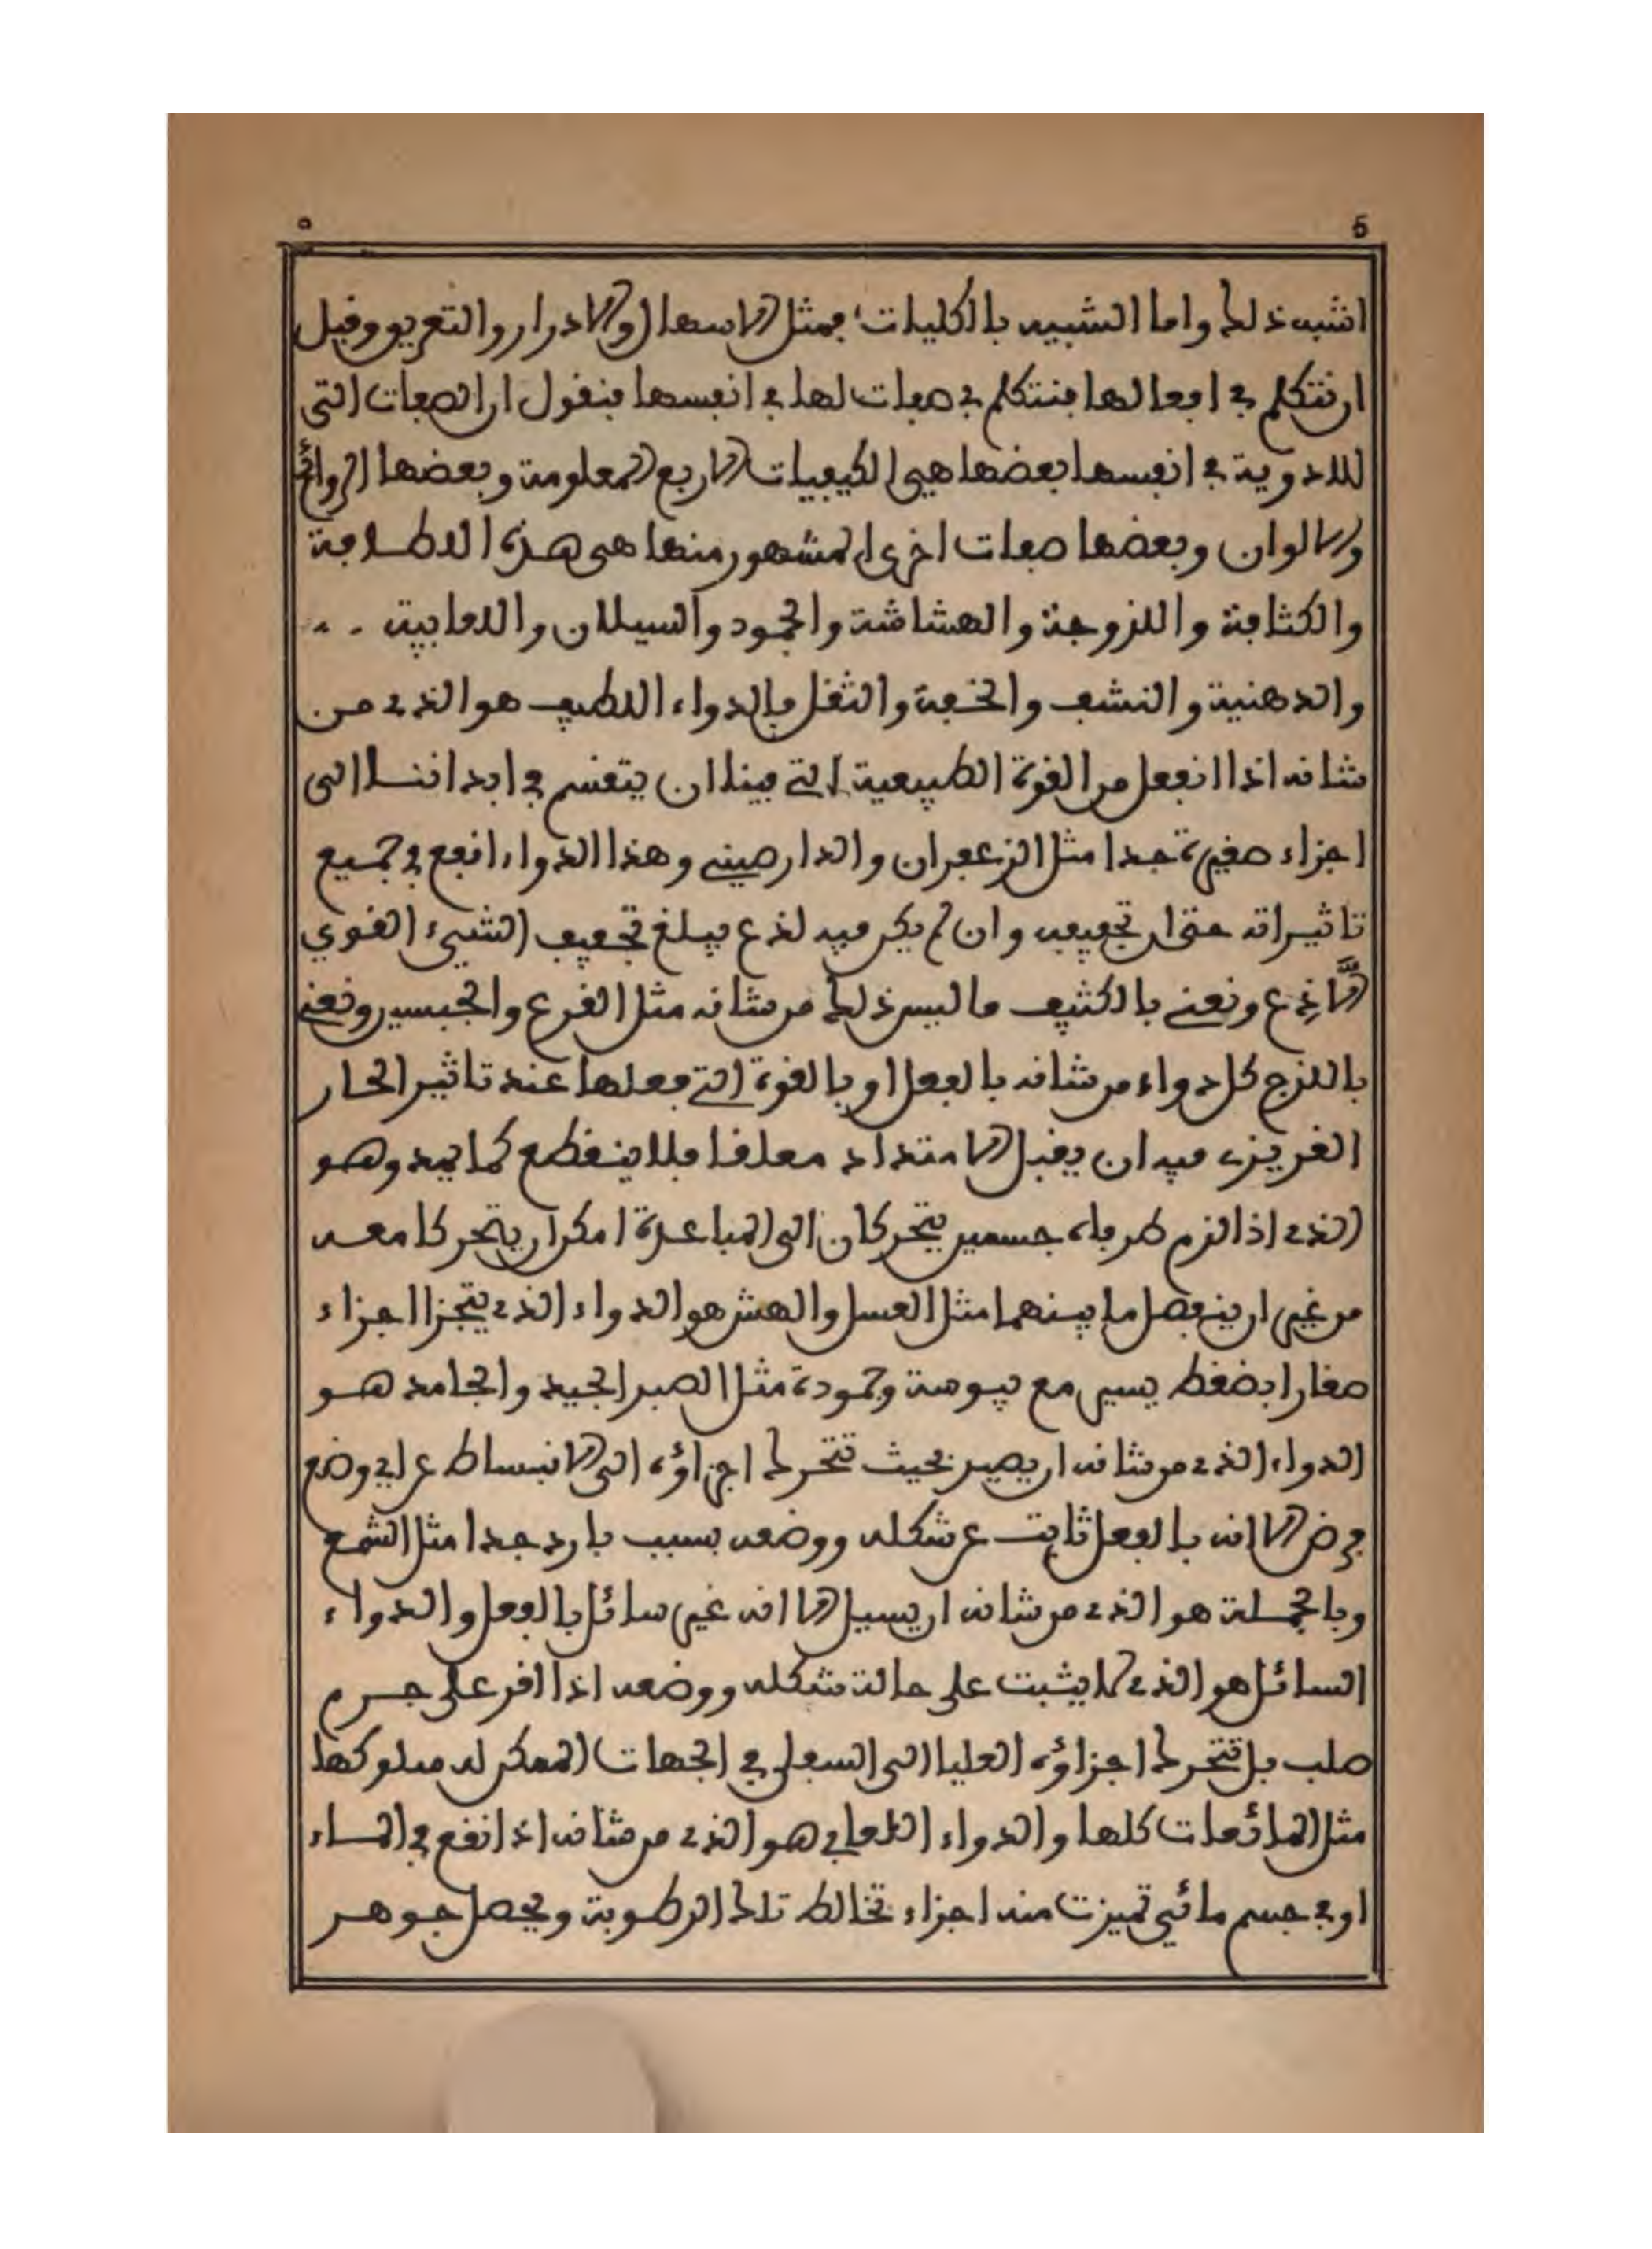 ٥ 5
اشبه ذلك واما الشبيه بالكليات فمثل الاسهال والادرار والتعريق وقبل
ان نتكلم في افعالها فنتكلم في صفات لها في انفسها فنقول ان الصفات التي
للادوية في انفسها بعضها هي الكيفيات الاربع المعلومة وبعضها الروائح
والالوان وبعضها صفات اخرى المشهور منها هي هذه اللطافة
والكثافة واللزوجة والهشاشة والجمود والسيلان واللعابية
والدهنية والنشف والخفة والثقل فالدواء اللطيف هو الذي من
شانه اذا انفعل من القوة الطبيعية التي فينا ان يتقسم في ابداننا الى
اجزاء صغيرة جدا مثل الزعفران والدارصيني وهذا الدواء انفع في جميع
تاثيراته حتى ان تجفيفه وان لم يكن فيه لذع يبلغ تجفيف الشيء القوي
اللاذع ونعني بالكثيف ما ليس ذلك من شانه مثل القرع والجبسين ونعني
باللزج كل دواء من شانه بالفعل او بالقوة التي فعلها عند تاثير الحار
الغريزي فيه ان يقبل الامتداد معلقا فلا ينقطع كما يمد وهو
الذي اذا لزم طرفاه جسمين يتحركان الى المباعدة امكن ان يتحركا معه
من غير ان ينفصل ما بينهما مثل العسل والهش هو الدواء الذي يتجزا اجزاء
صغارا بضغط يسير مع يبوسة وجمودة مثل الصبر الجيد والجامد هو
الدواء الذي من شانه ان يصير بحيث تتحرك اجزاؤه الى الانبساط عن اي وضع
فرض الا انه بالفعل ثابت عن شكله ووضعه بسبب بارد جدا مثل الشمع
وبالجملة هو الذي من شانه ان يسيل الا انه غير سائل بالفعل والدواء
السائل هو الذي لا يثبت على حالة شكله ووضعه اذا اقر على جرم
صلب بل تتحرك اجزاؤه العليا الى السفلى في الجهات الممكن له سلوكها
مثل المائعات كلها والدواء اللعابي هو الذي من شانه اذا نقع في الماء
او في جسم مائي تميزت منه اجزاء تخالط تلك الرطوبة ويحصل جوهر